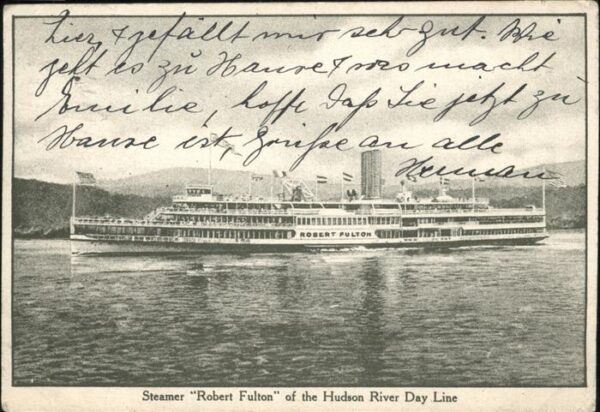 hier, & gefällt mir sehr gut. Wie
geht es zu Hause & was macht
Emilie, hoffe daß sie jetzt zu
Hause ist, Grüße an alle
Herman
ROBERT FULTON
Steamer "Robert Fulton" of the Hudson River Day Line